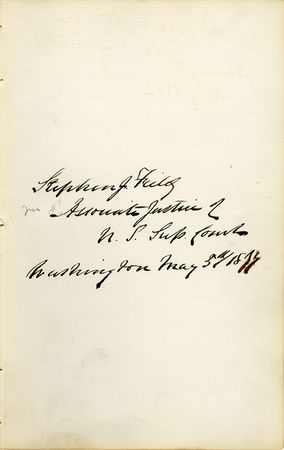 Stephen J. Field
Associate Justice of
U. S. Sup. Court
Washington May 5th